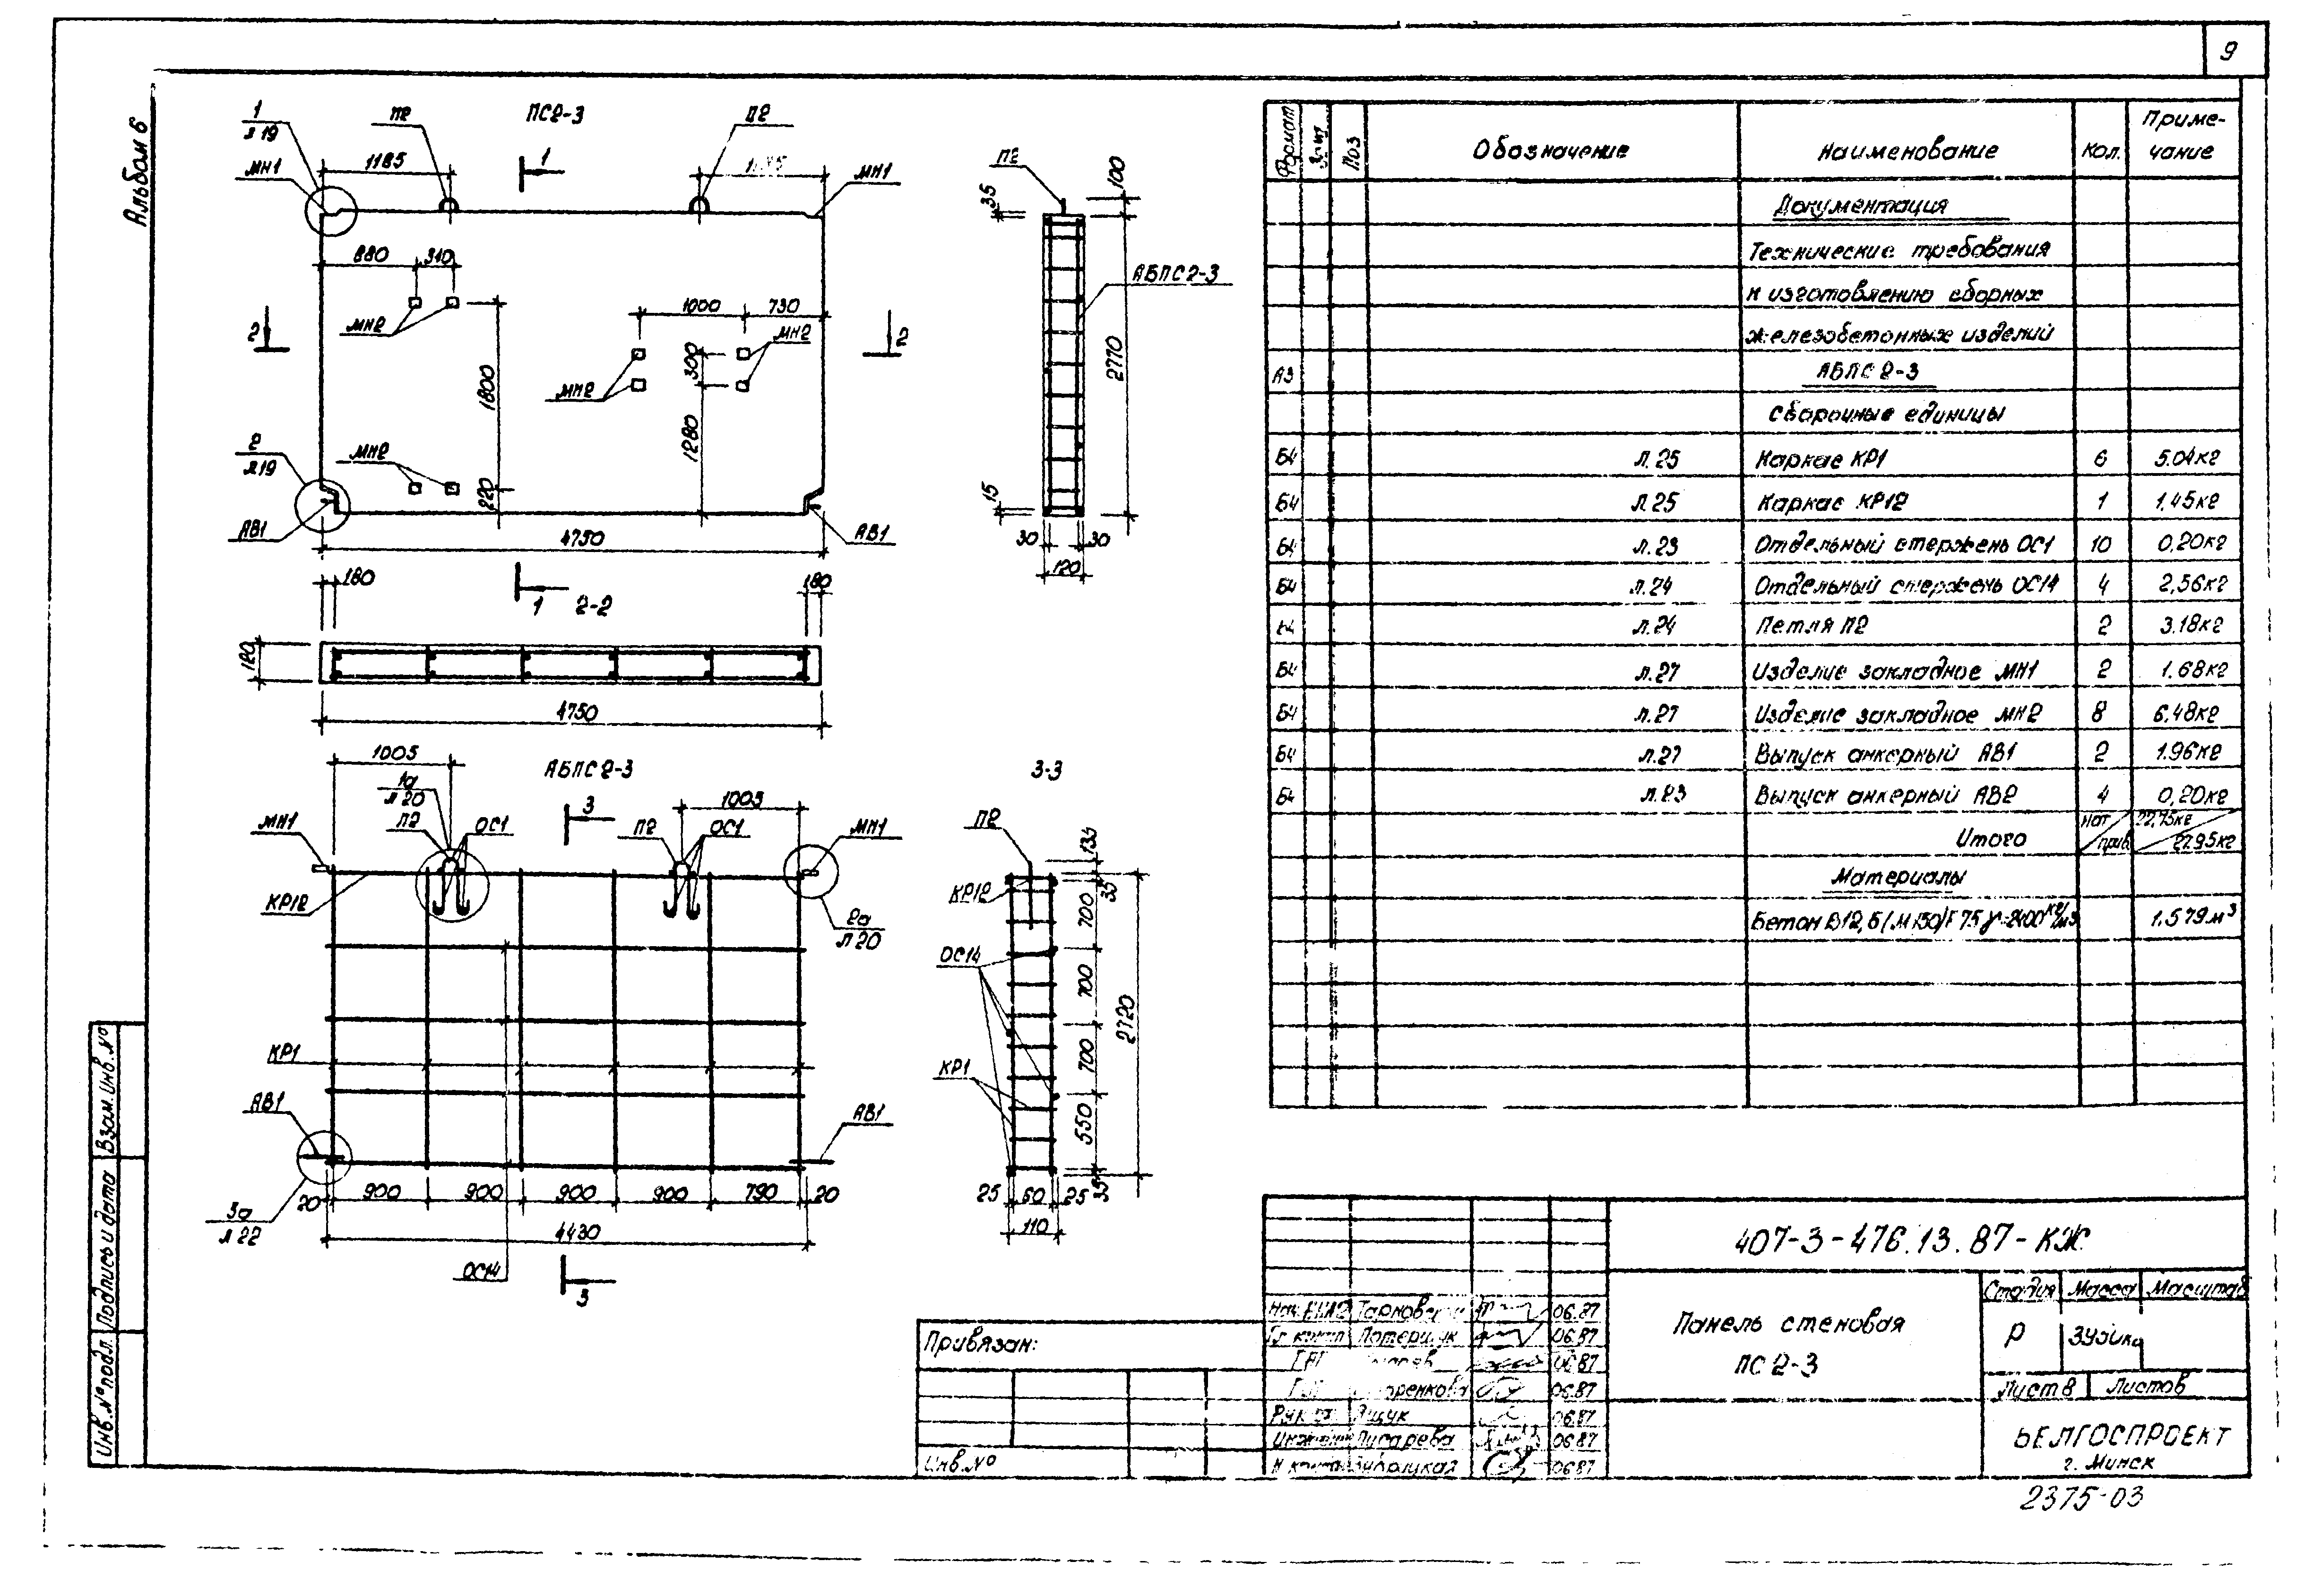 9
Альбом 6
ПС2-3
1
л 19
П2
П2
1
МН1
1185
МН1
880
310
МН2
1000
730
МН2
МН2
300
1800
1280
220
МН2
2
2
2
л 19
АВ1
АВ1
4750
1
180
180
2-2
120
4750
П2
35
100
АБПС2-3
2770
15
30
30
120
АБПС2-3
1005
1005
1а
л 20
П2
ОС1
3
П2
ОС1
МН1
МН1
КР12
2а
л 20
КР1
АВ1
АВ1
20
900
900
900
900
790
20
3а
л 22
4430
ОС14
3
3-3
П2
135
КР12
35
700
ОС14
700
2720
700
КР1
550
35
25
60
25
110
Формат
Зона
Поз
Обозначение
Наименование
Кол.
Приме-
чание
Документация
Технические требования
к изготовлению сборных
железобетонных изделий
А3 АБПС2-3
Сборочные единицы
Б4 л.25 Каркас КР1 6 5.04кг
Б4 л.25 Каркас КР12 1 1.45кг
Б4 л.23 Отдельный стержень ОС1 10 0,20кг
Б4 л.24 Отдельный стержень ОС14 4 2,56кг
Б4 л.24 Петля П2 2 3.18кг
Б4 л.27 Изделие закладное МН1 2 1.68кг
Б4 л.27 Изделие закладное МН2 8 6.48кг
Б4 л.27 Выпуск анкерный АВ1 2 1.96кг
Б4 л.23 Выпуск анкерный АВ2 4 0,20кг
Итого нат. 22,75кг
прив. 27.95кг
Материалы
Бетон В12,5 (М150) F75 γ=2400кг/м3 1.579м3
407-3-476.13.87-КЖ
Панель стеновая
ПС2-3
Стадия Масса Масштаб
Р
Лист 8 Листов
БЕЛГОСПРОЕКТ
г. Минск
2375-03
06.87
06.87
06.87
06.87
06.87
Инженер Писарева 06.87
06.87
Привязан:
Инв.№
Инв.№ подл.
Подпись и дата
Взам.инв.№